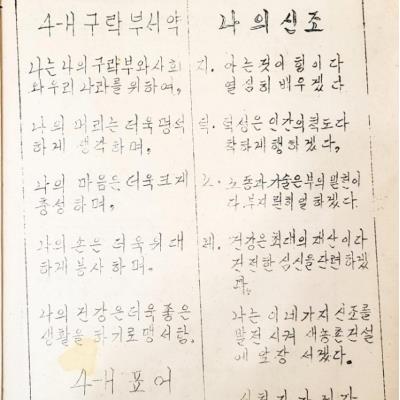 4-H 구락부서약
나는 나의 구락부와 사회
와 우리 나라를 위하여,
나의 머리는 더욱 명석
하게 생각하며,
나의 마음은 더욱 크게
충성하며,
나의 손은 더욱 위대
하게 봉사하며,
나의 건강은 더욱 좋은
생활을 하기로 맹서함.
4-H 표어
나의 신조
지. 아는 것이 힘이다
열심히 배우겠다
덕. 덕성은 인간의 척도다
착하게 행하겠다,
노. 노동과 기술은 부의 원천이
다. 부지런히 일하겠다
체. 건강은 최대의 재산이다
건전한 심신을 단련하겠
다.
나는 이 네가지 신조를
발전시켜 새농촌건설
에 앞장 서겠다.